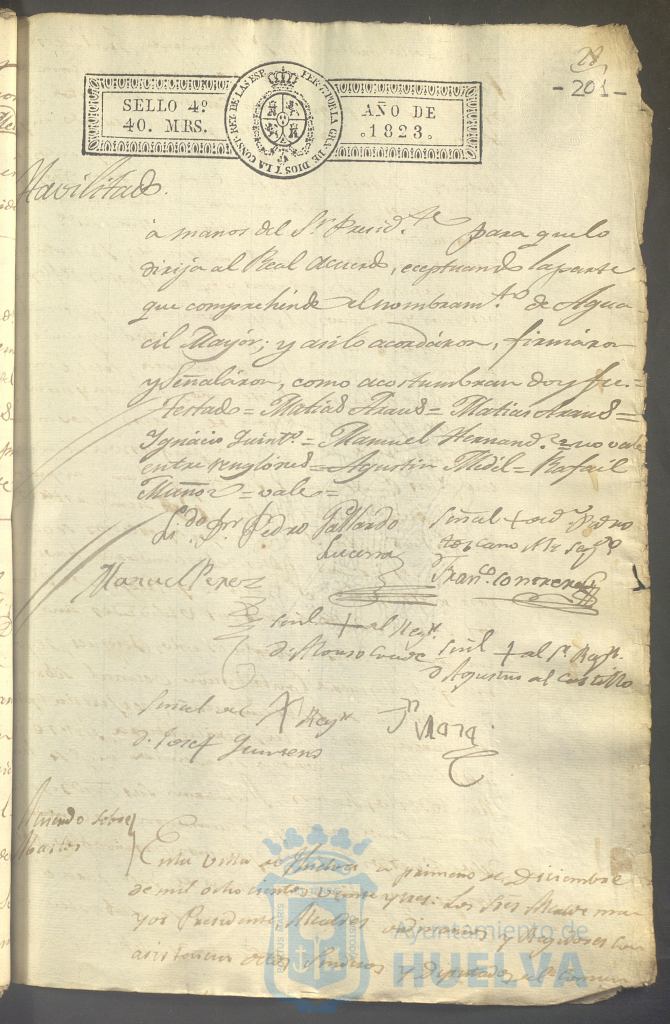 201
SELLO 4º
40. MRS.
AÑO DE
1823.
Havilitado.
à manos del Sr. Presid.te para que lo
dirija al Real Acuerdo, eceptuando la parte
que comprehende el nombram.to de Agua-
cil Mayór; y asi lo acordáron, firmáron
y Señaláron, como acostumbran doy fee. =
Testado = Matias = Matias =
Ignácio = Manuel Hernand.z = no vale
entre renglones = Agustin = Rafaél
Muñoz = vale =
L.do Dn. Pedro Gallardo
Lucena
Señal + de Dn. Pedro
Toscano
Manuel Perez
Fran.co
Señal + del Rex.r
Dn. Alonso
Señal + del Sr. Rex.r
Dn. Agustin del Castillo
Señal del + Rex.r
Dn. Josef
Acuerdo sobre
En la Villa de Huelva à primero de Diciembre
de mil ocho cientos veinte y tres: Los Sres. Alcalde ma-
yor Presidente Alcaldes ordinarios y Regidores con
asistencia de los Sindicos y Diputados del Comun
Ayuntamiento de
HUELVA